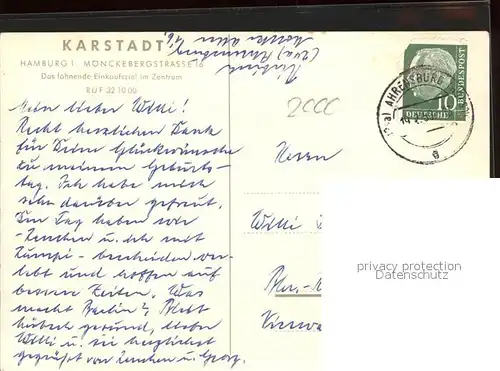 KARSTADT
HAMBURG 1 MÖNCKEBERGSTRASSE 16
Das lohnende Einkaufsziel im Zentrum
RUF 32 10 06
(24a) Ahrensburg
Mein lieber Willi!
Recht herzlichen Dank
für Deine Glückwünsche
zu meinem Geburts-
tag. Ich habe mich
sehr darüber gefreut.
Den Tag haben wir
- u. ich mit
- bescheiden ver-
lebt und hoffen auf
bessere Zeiten. Was
macht Berlin? Bleibt
hübsch gesund, lieber
Willi u. sei herzlichst
gegrüßt von und Georg.
2000
Herrn
Willi
Bln.-
(24a) AHRENSBURG
g
DEUTSCHE
BUNDESPOST
10
privacy protection
Datenschutz